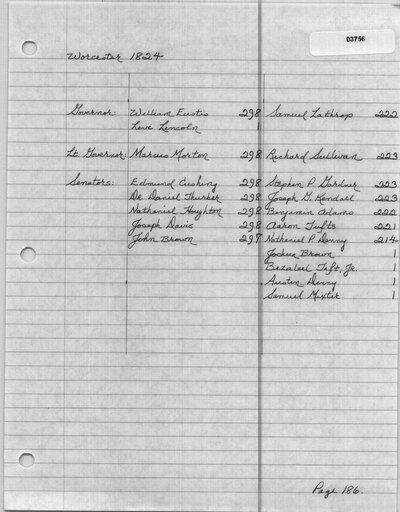 03756
Worcester 1824
Governor: William Eustis 298 Samuel Lathrop 222
Levi Lincoln 1
Lt. Governor: Marcus Morton 298 Richard Sullivan 223
Senators: Edmund Cushing 298 Stephen P. Gardner 223
Dr. Daniel Thurber 298 Joseph G. Kendall 223
Nathaniel Houghton 298 Benjamin Adams 222
Joseph Davis 298 Aaron Tufts 221
John Brown 297 Nathaniel P. Denny 214
Joshua Brown 1
Bezaleel Taft, Jr. 1
Austin Denny 1
Samuel Mixter 1
Page 186.